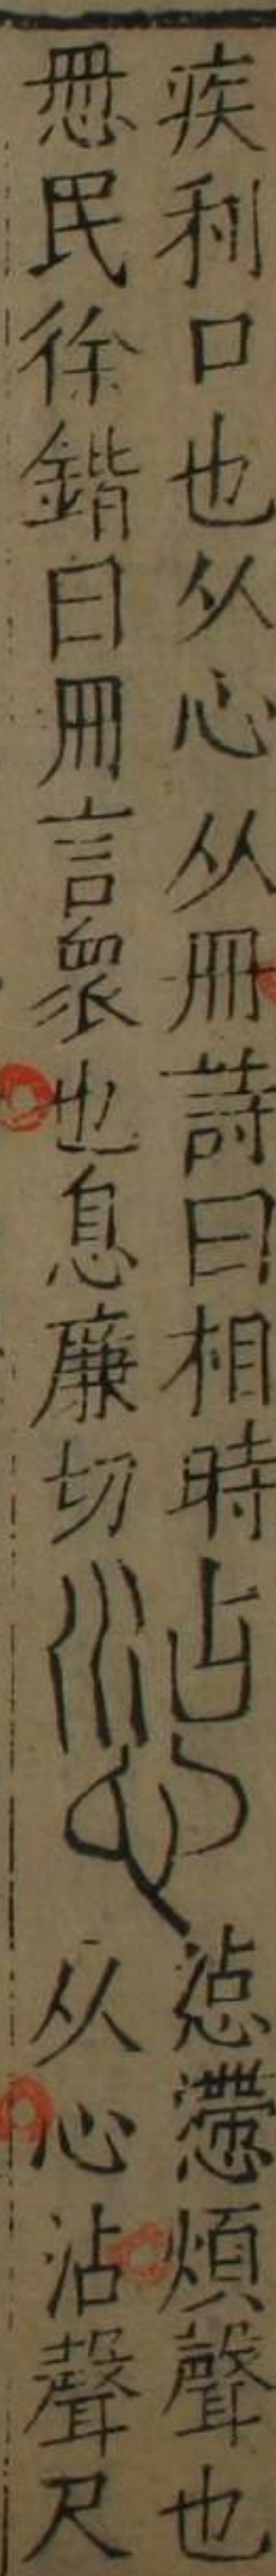 疾利口也从心从冊詩曰相時
𢘍民徐鍇曰冊言衆也息廉切
惉
惉懘煩聲也
从心沾聲尺